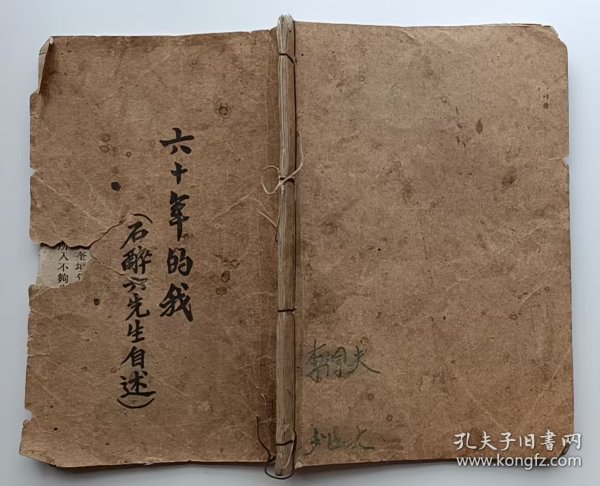 六十年的我
(石醉六先生自述)
所入不夠
孔夫子旧書网
www.kongfz.com